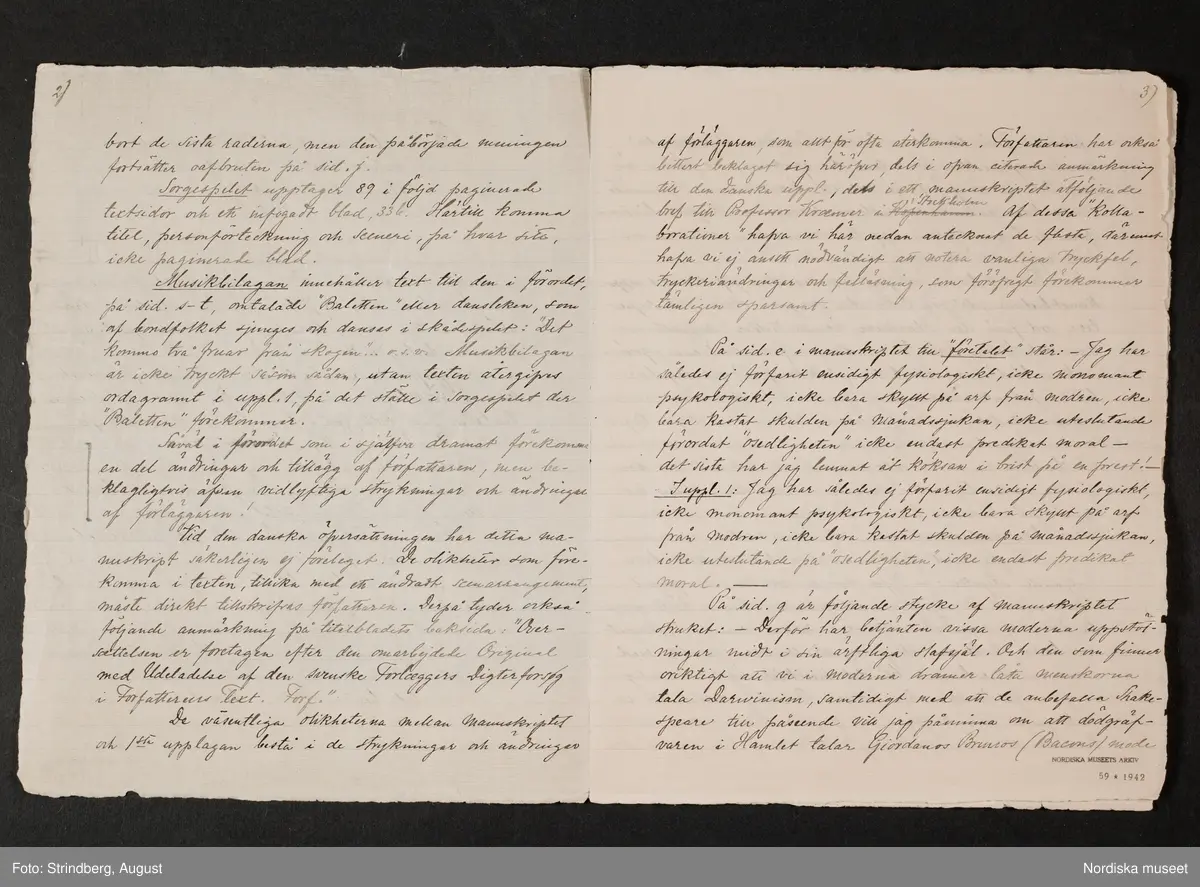 2)
bort de sista raderna, men den påbörjade meningen
fortsätter oafbruten på sid. j.
Sorgespelet upptager 89 i följd paginerade
textsidor och ett infogadt blad, 33 b. Härtill komma
titel, personförteckning och sceneri, på hvar sitt,
icke paginerade blad.
Musikbilagan innehåller text till den i förordet,
på sid. s-t, omtalade "Baletten" eller dansleken, som
af bondfolket sjunges och dansas i skådespelet: "Det
kommo två fruar från skogen"... o.s.v. Musikbilagan
är icke tryckt såsom sådan, utan texten återgifves
ordagrannt i uppl. 1, på det ställe i sorgespelet der
"Baletten" förekommer.
Såväl i förordet som i sjelfva dramat förekomma
en del ändringar och tillägg af författaren, men be-
klagligtvis äfven vidlyftiga strykningar och ändringar
af förläggaren.
Vid den danska öfversättningen har detta ma-
nuskript säkerligen ej förelegat. De olikheter som före-
komma i texten, tillika med ett ändradt scenarrangement,
måste direkt tillskrifvas författaren. Derpå tyder också
följande anmärkning på titelbladets baksida: "Over-
sættelsen er foretagen efter den omarbejdede Original
med Udeladelse af den svenske Forlæggers Digterforsøg
i Forfatterens Text. Forf."
De väsentliga olikheterna mellan manuskriptet
och 1sta upplagan bestå i de strykningar och ändringar
3)
af förläggaren, som allt för ofta återkomma. Författaren har också
bittert beklagat sig häröfver, dels i ofvan citerade anmärkning
till den danske uppl., dels i ett, manuskriptet åtföljande
bref till Professor Kræmer i Köpenhamn Stockholm. Af dessa "Kolla-
borationer" hafva vi här nedan antecknat de flesta, däremot
hafva vi ej ansett nödvändigt att notera vanliga tryckfel,
tryckeriändringar och felläsning, som föröfrigt förekommer
tämligen sparsamt.
På sid. e i manuskriptet till "företalet" står: - Jag har
således ej förfarit ensidigt fysiologiskt, icke monomant
psykologiskt, icke bara skyllt på arf från modren, icke
bara kastat skulden på månadssjukan, icke uteslutande
förordat "osedligheten" icke endast predikat moral -
det sista har jag lemnat åt köksan i brist på en prest! -
I uppl. 1: Jag har således ej förfarit ensidigt fysiologiskt,
icke monomant psykologiskt, icke bara skyllt på arf
från modren, icke bara kastat skulden på månadssjukan,
icke uteslutande på "osedligheten", icke endast predikat
moral. -
På sid. g är följande stycke af manuskriptet
struket: - Derför har betjänten vissa moderna uppstöt-
ningar midt i sin ärftliga slafsjäl. Och den som finner
oriktigt att vi i moderna dramer låta menskorna
tala Darwinism, samtidigt med att de anbefalla Shake-
speare till påseende vill jag påminna om att dödgräf-
varen i Hamlet talar Giordanos Brunos (Bacons) mode
NORDISKA MUSEETS ARKIV
59 * 1942
Foto: Strindberg, August
Nordiska museet